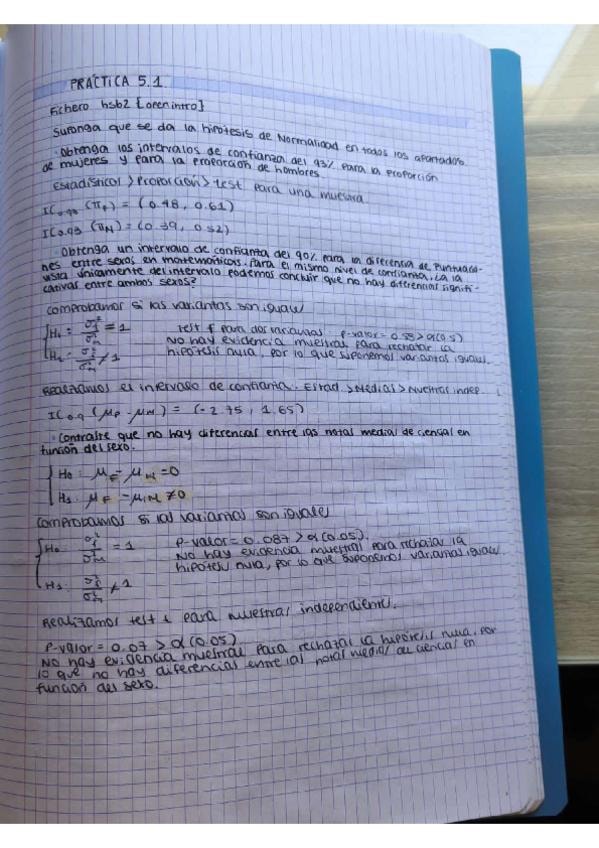 PRÁCTICA 5.1
Fichero hsb2 {openintro}
Suponga que se da la hipótesis de Normalidad en todos los apartados.
· Obtenga los intervalos de confianza del 93% para la proporción
de mujeres y para la proporción de hombres.
Estadísticos > Proporción > test para una muestra.
IC0.93 (πF) = (0.48, 0.61)
IC0.93 (πM) = (0.39, 0.52)
· Obtenga un intervalo de confianza del 90% para la diferencia de puntuacio-
nes entre sexos en matemáticas. Para el mismo nivel de confianza, ¿a la
vista únicamente del intervalo podemos concluir que no hay diferencias signifi-
cativas entre ambos sexos?
Comprobamos si las varianzas son iguales
H0: = 1 Test f para dos varianzas p-valor = 0.58 > α(0.5)
No hay evidencia muestral para rechazar la
H1: ≠ 1 hipótesis nula, por lo que suponemos varianzas iguales.
Realizamos el intervalo de confianza. Estad. > Medias > Muestras indep.
IC0.9 (μF - μM) = (-2.75, 1.65)
· Contraste que no hay diferencias entre las notas medias de ciencias en
función del sexo.
H0: μF - μM = 0
H1: μF - μM ≠ 0
Comprobamos si las varianzas son iguales
H0: = 1 P-valor = 0.087 > α(0.05).
No hay evidencia muestral para rechazar la
hipótesis nula, por lo que suponemos varianzas iguales.
H1: ≠ 1
Realizamos test t para muestras independientes.
P-valor = 0.07 > α(0.05)
No hay evidencia muestral para rechazar la hipótesis nula, por
lo que no hay diferencias entre las notas medias de ciencias en
función del sexo.